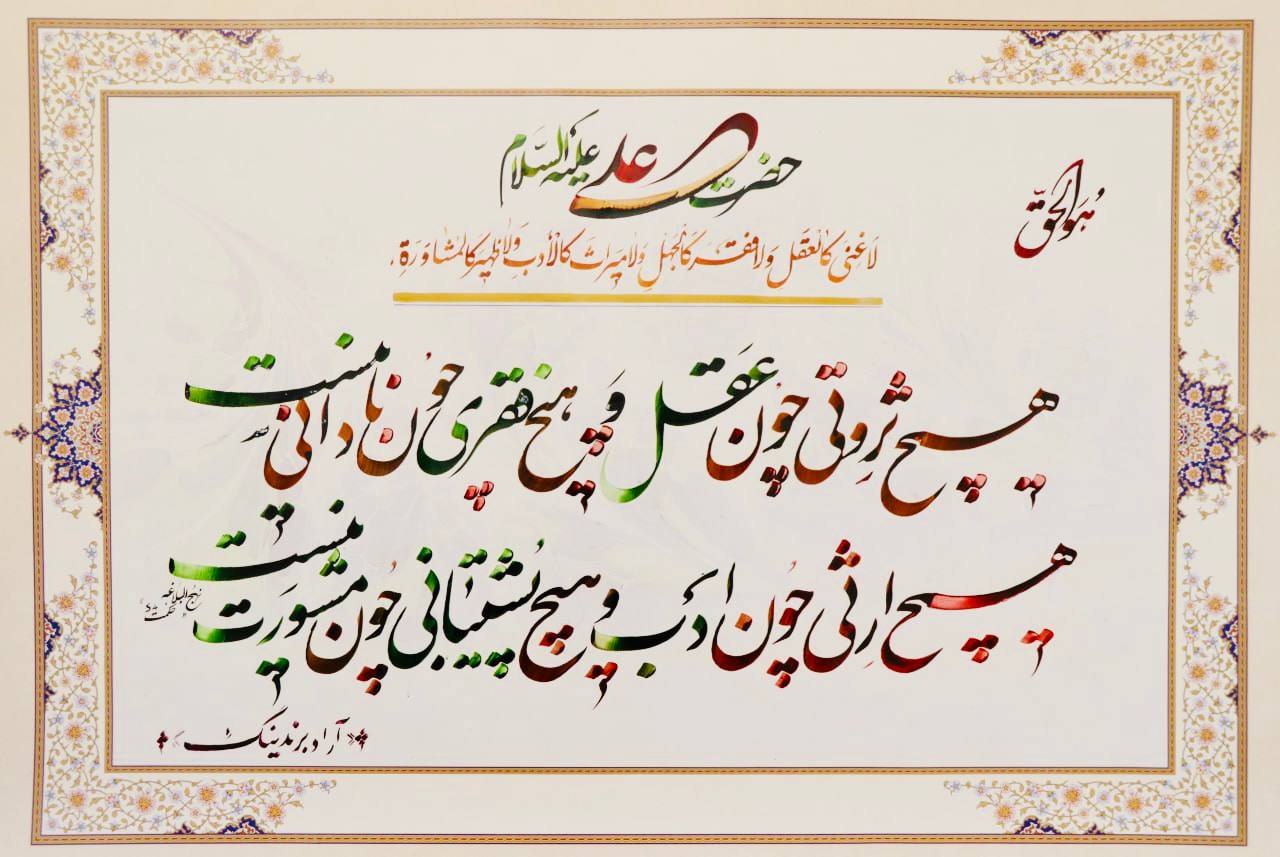 هُوَ الحَقّ
حضرت علی علیه السَّلام
لاَغِنیٰ کَالعَقلِ وَلاٰ فَقْرَ کَالجَهلِ وَلاٰ میراثَ کَالأَدبِ وَلاٰ ظَهیرَ کَالمُشاوَرَةِ
هیچ ثروتی چون عَقل و هیچ فقری چون نادانی نیست
هیچ ارثی چون ادب و هیچ پُشتیبانی چون مشورت نیست
نهج البلاغه
حکمت ۵۴
آراد برندینگ